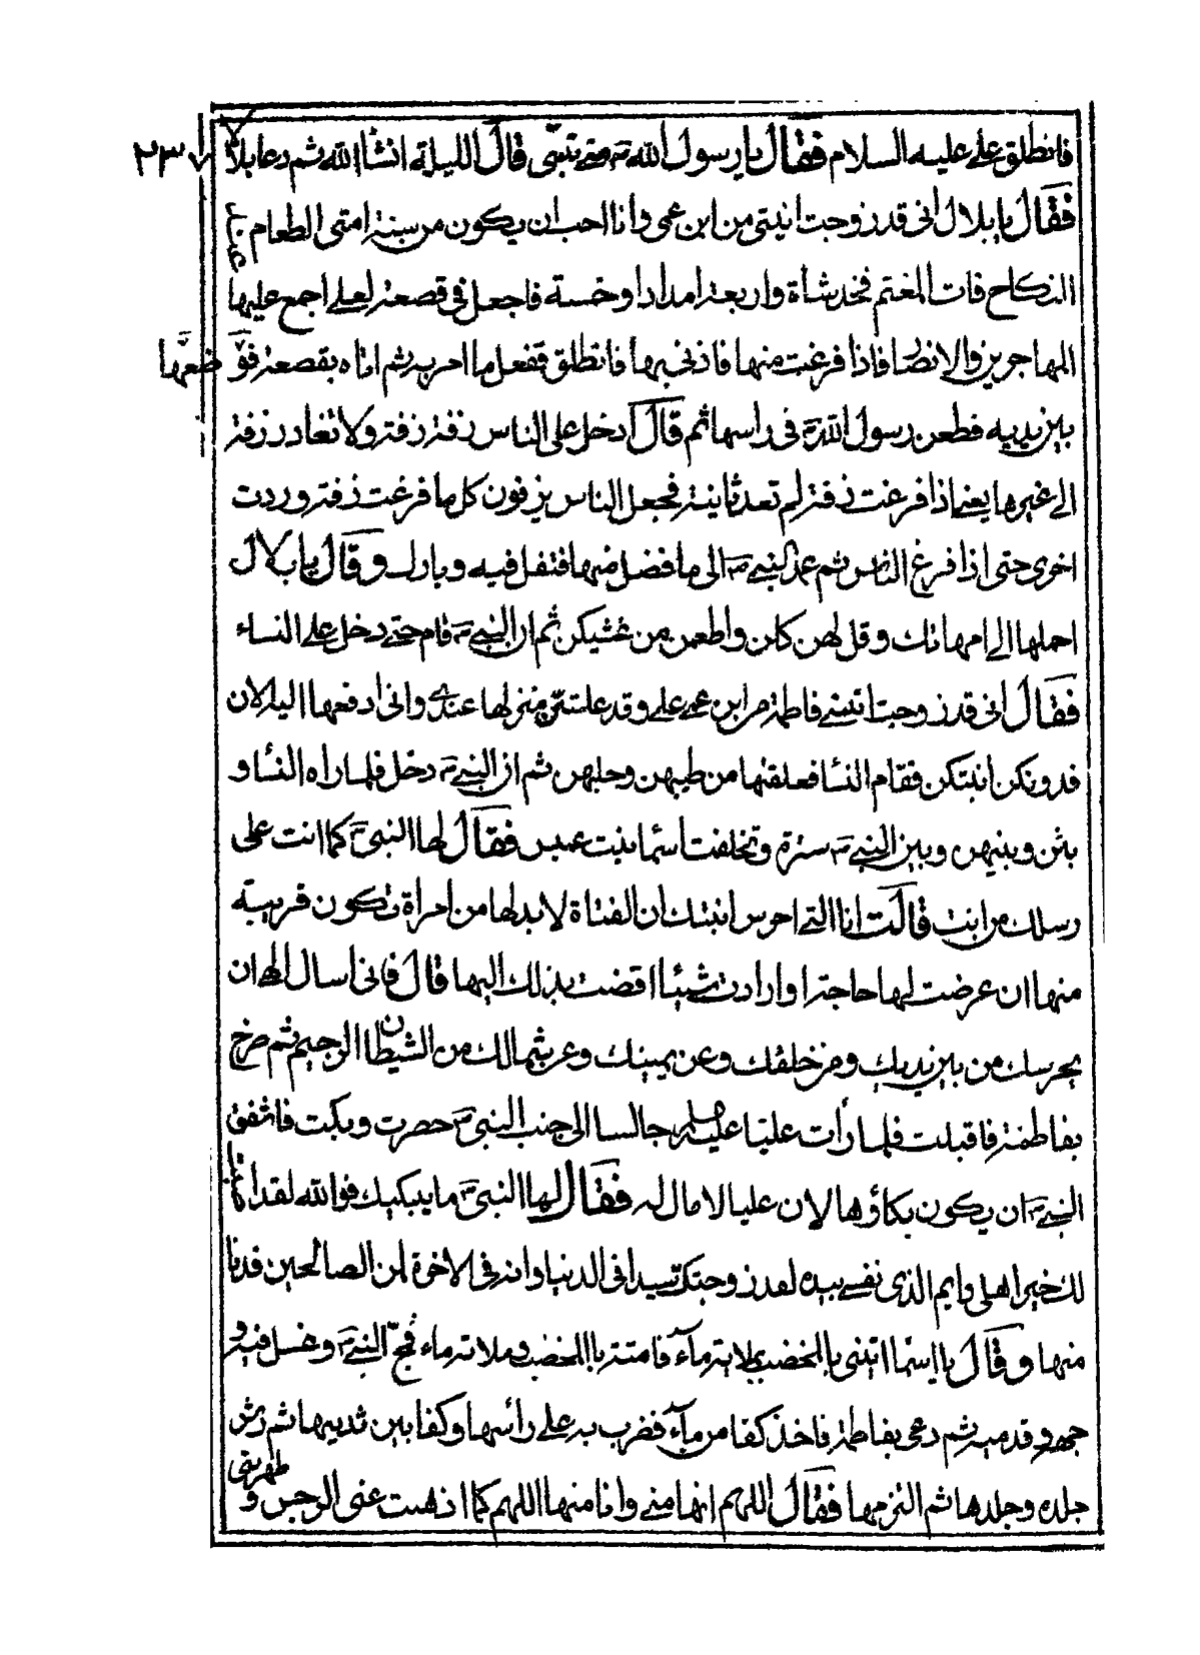 ٢٣٧
فانطلق علي عليه السلام فقال يا رسول الله ص متى تبنى قال الليلة انشا الله ثم دعا بلالا
فقال يا بلال انى قد زوجت ابنتى من ابن عمى وانا احب ان يكون من سنة امتى الطعام عند
النكاح فات الغنم فخذ شاة واربعة امداد او خمسة فاجعل فى قصعة لعلى اجمع عليها
المهاجرين والانصار فاذا فرغت منها فاذنى بها فانطلق ففعل ما امر به ثم اتاه بقصعة فوضعها
بين يديه فطعن رسول الله ص فى راسها ثم قال ادخل على الناس زفة زفة ولا تغادر زفة
الى غيرها يعنى اذا فرغت زفة لم تعد ثانية فجعل الناس يزفون كلما فرغت زفة وردت
اخرى حتى اذا فرغ الناس ثم عمد النبى ص الى ما فضل منها فتفل فيه وبارك وقال يا بلال
احملها الى امهاتك وقل لهن كلن واطعمن من غشيكن ثم ان النبى ص قام حتى دخل على النساء
فقال انى قد زوجت ابنتى فاطمة من ابن عمى على وقد علمتن منزلها عندى وانى ادفعها اليه الان
فدونكن ابنتكن فقام النسا فعلقنها من طيبهن وحليهن ثم ان النبى ص دخل فلما راه النسا و
ثبن وبينهن وبين النبى ص سترة وتخلفت اسما بنت عميس فقال لها النبى ص كما انت على
رسلك من انت قالت انا التى احرس ابنتك ان الفتاة لا بد لها من امراة تكون قريبة
منها ان عرضت لها حاجة او ارادت شيئا افضت بذلك اليها قال فانى اسال الهى ان
يحرسك من بين يديك ومن خلفك وعن يمينك وعن شمالك من الشيطان الرجيم ثم صرخ
بفاطمة فاقبلت فلما رأت عليا عليه السلم جالسا الى جنب النبى ص حصرت وبكت فاشفق
النبى ص ان يكون بكاؤها لان عليا لا مال له فقال لها النبى ص ما يبكيك فوالله لقد
لك خير اهلى وايم الذى نفسى بيده لقد زوجتك سيدا فى الدنيا وانه فى الاخرة لمن الصالحين فدنا
منها وقال يا اسما ائتنى بالمخضب فملائته مآء فاتت باالمخضب وملائه ماء فمج النبى ص وغسل فيه و
جهه وقدميه ثم دعى بفاطمة فاخذ كفا من مآء فضرب به على رأسها وكفا بين ثدييها ثم رش
جلده وجلدها ثم التزمها فقال اللهم انها منى وانا منها اللهم كما اذهبت عنى الرجس و
طهرتنى